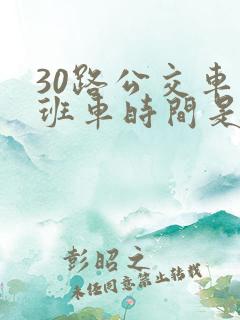 30路公交車
班車時間是
彭昭之
未经同意禁止转载